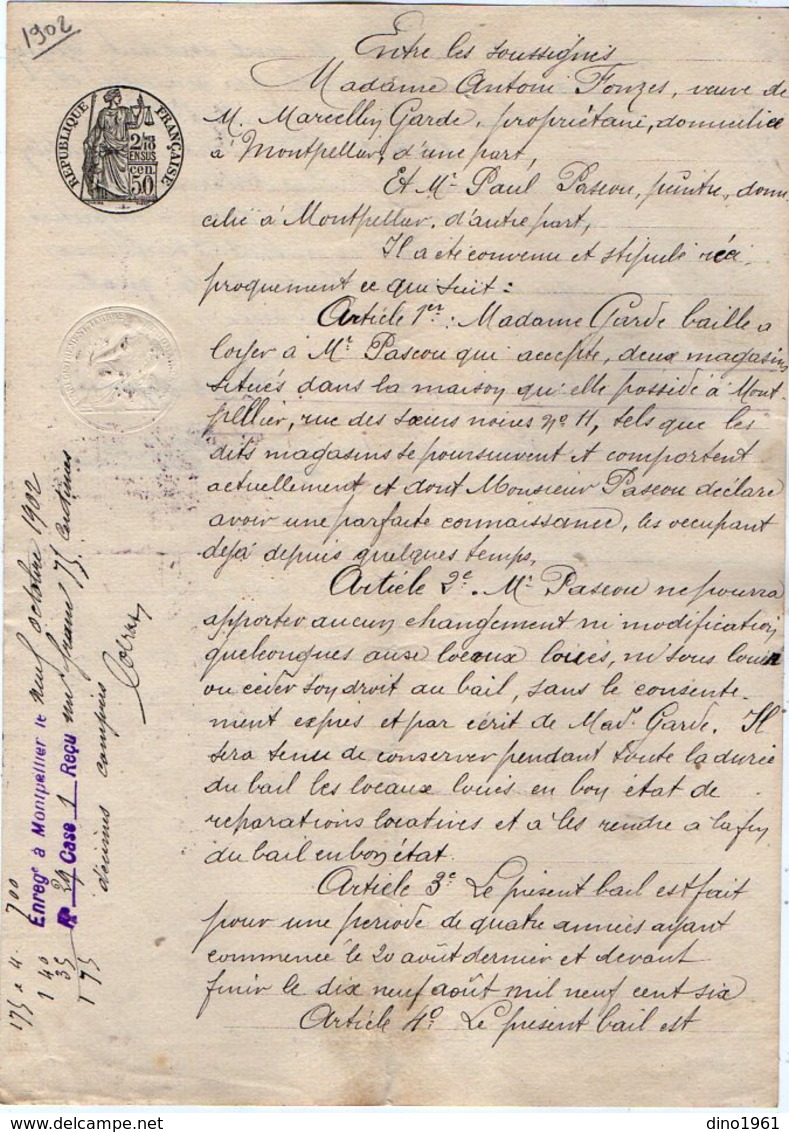 1902
Entre les soussignés
Madame Antoni Fonzes, veuve de
M. Marcellin Garde, propriétaire, domiciliée
à Montpellier, d'une part,
Et Mr. Paul Pascou, peintre, domi
cilié à Montpellier, d'autre part,
Il a été convenu et stipulé réci
proquement ce qui suit :
Article 1er : Madame Garde baille a
loyer à Mr. Pascou qui accepte, deux magasins
situés dans la maison qu'elle possède à Mont-
pellier, rue des sœurs noires no 11, tels que les
dits magasins se poursuivent et comportent
actuellement et dont Monsieur Pascou déclare
avoir une parfaite connaissance, les occupant
déjà depuis quelques temps,
Article 2e. Mr. Pascou ne pourra
apporter aucun changement ni modification
quelconques aux locaux loués, ni sous louer
ou céder son droit au bail, sans le consente-
ment exprès et par écrit de Made. Garde. Il
sera tenu de conserver pendant toute la durée
du bail les locaux loués en bon état de
réparations locatives et à les rendre à la fin
du bail en bon état.
Article 3e Le présent bail est fait
pour une période de quatre années ayant
commencé le 20 août dernier et devant
finir le dix neuf août mil neuf cent six
Article 4e. Le présent bail est
RÉPUBLIQUE FRANÇAISE
2/10
EN SUS
50 cen.
Enregé à Montpellier le neuf octobre 1902
Fo 39 Case 1 Reçu un franc 75 centimes
décimes compris
175 x 4. 700
1 40
35
1 75
dino1961